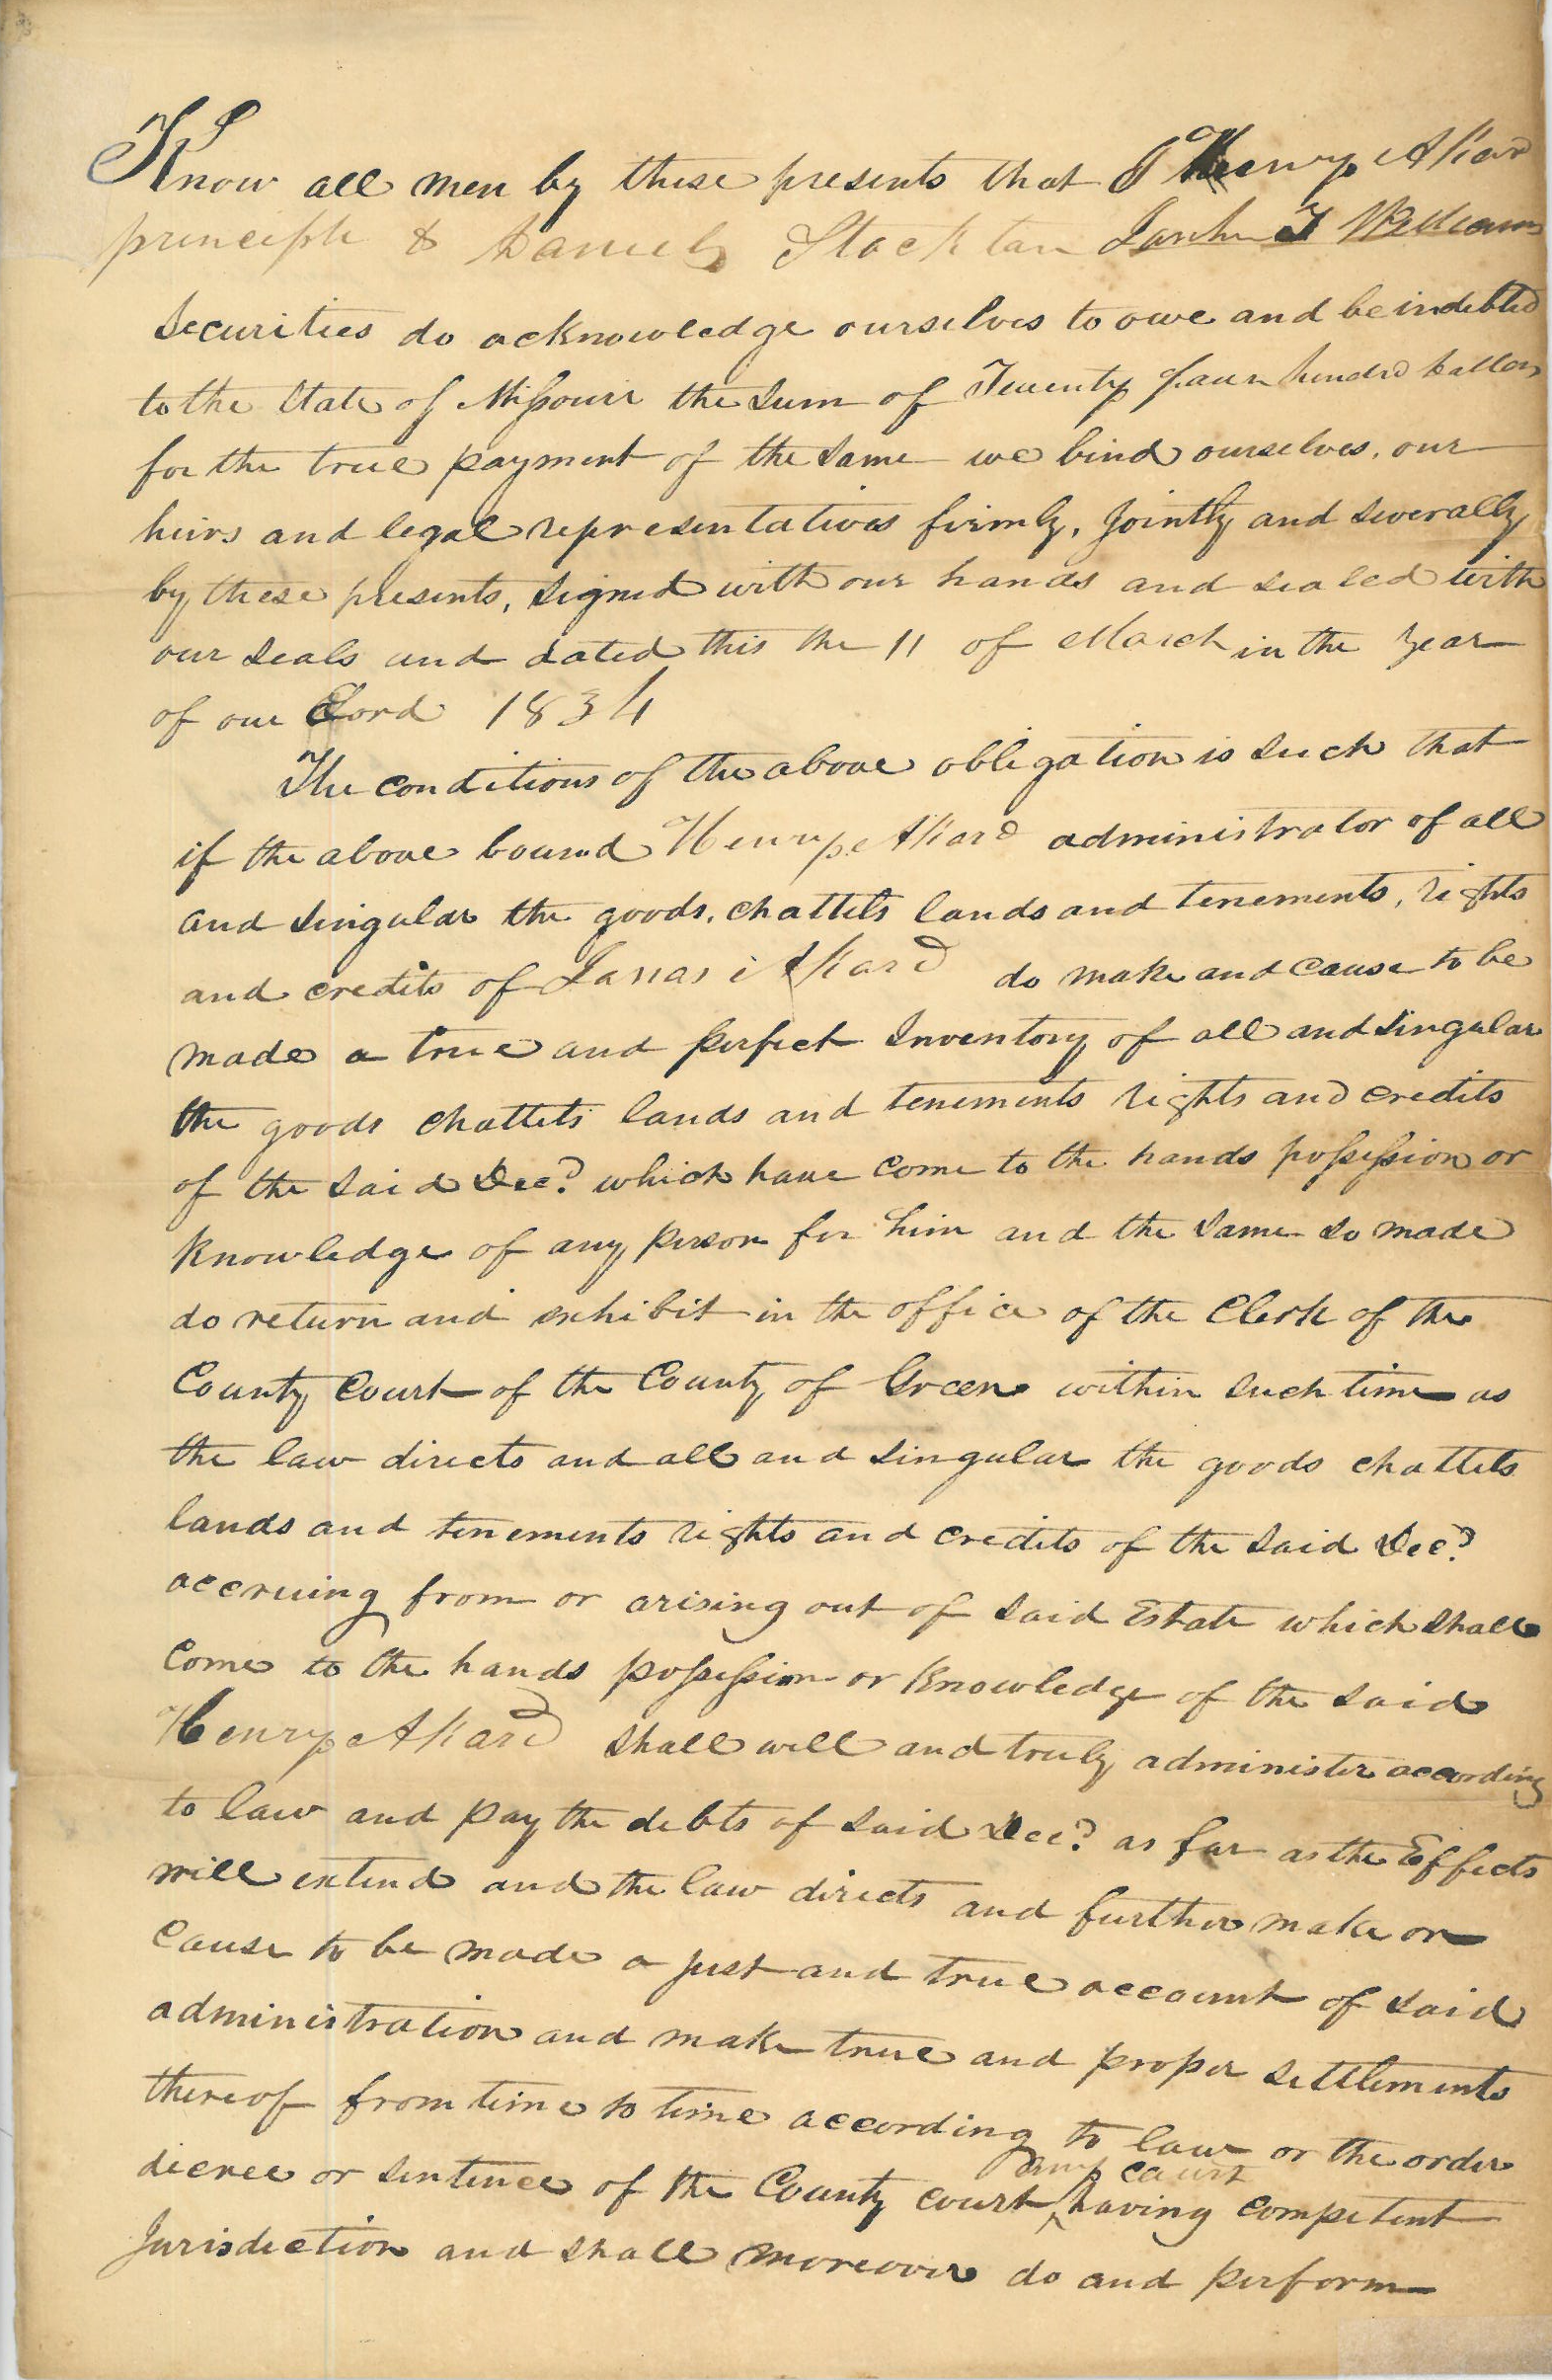 Know all men by these presents that I Henry Akard
principle & Daniel Stockton T Williams
Securities do acknowledge ourselves to owe and be indebted
to the State of Missouri the Sum of Twenty four hundrd dollars
for the true payment of the Same we bind ourselves, our
heirs and legal representatives firmly, jointly and severally
by these presents, Signed with our hands and sealed with
our seals and dated this the 11 of March in the year
of our Lord 1834
The conditions of the above obligation is such that
if the above bound Henry Akard administrator of all
and singular the goods, chattels lands and tenements, rights
and credits of Akard do make and cause to be
made a true and perfect Inventory of all and singular
the goods chattels lands and tenements rights and credits
of the said Decd which have come to the hands possession or
knowledge of any person for him and the same so made
do return and exhibit in the office of the Clerk of the
County Court of the County of Green within such time as
the law directs and all and singular the goods chattels
lands and tenements rights and credits of the said Decd
accruing from or arising out of said Estate which shall
come to the hands possession or knowledge of the said
Henry Akard shall well and truly administer according
to law and pay the debts of said Decd as far as the Effects
will extend and the law directs and further make or
cause to be made a just and true account of said
administration and make true and proper settlements
thereof from time to time according to law or the order
decree or sentence of the County court any court having competent
Jurisdiction and shall moreover do and perform